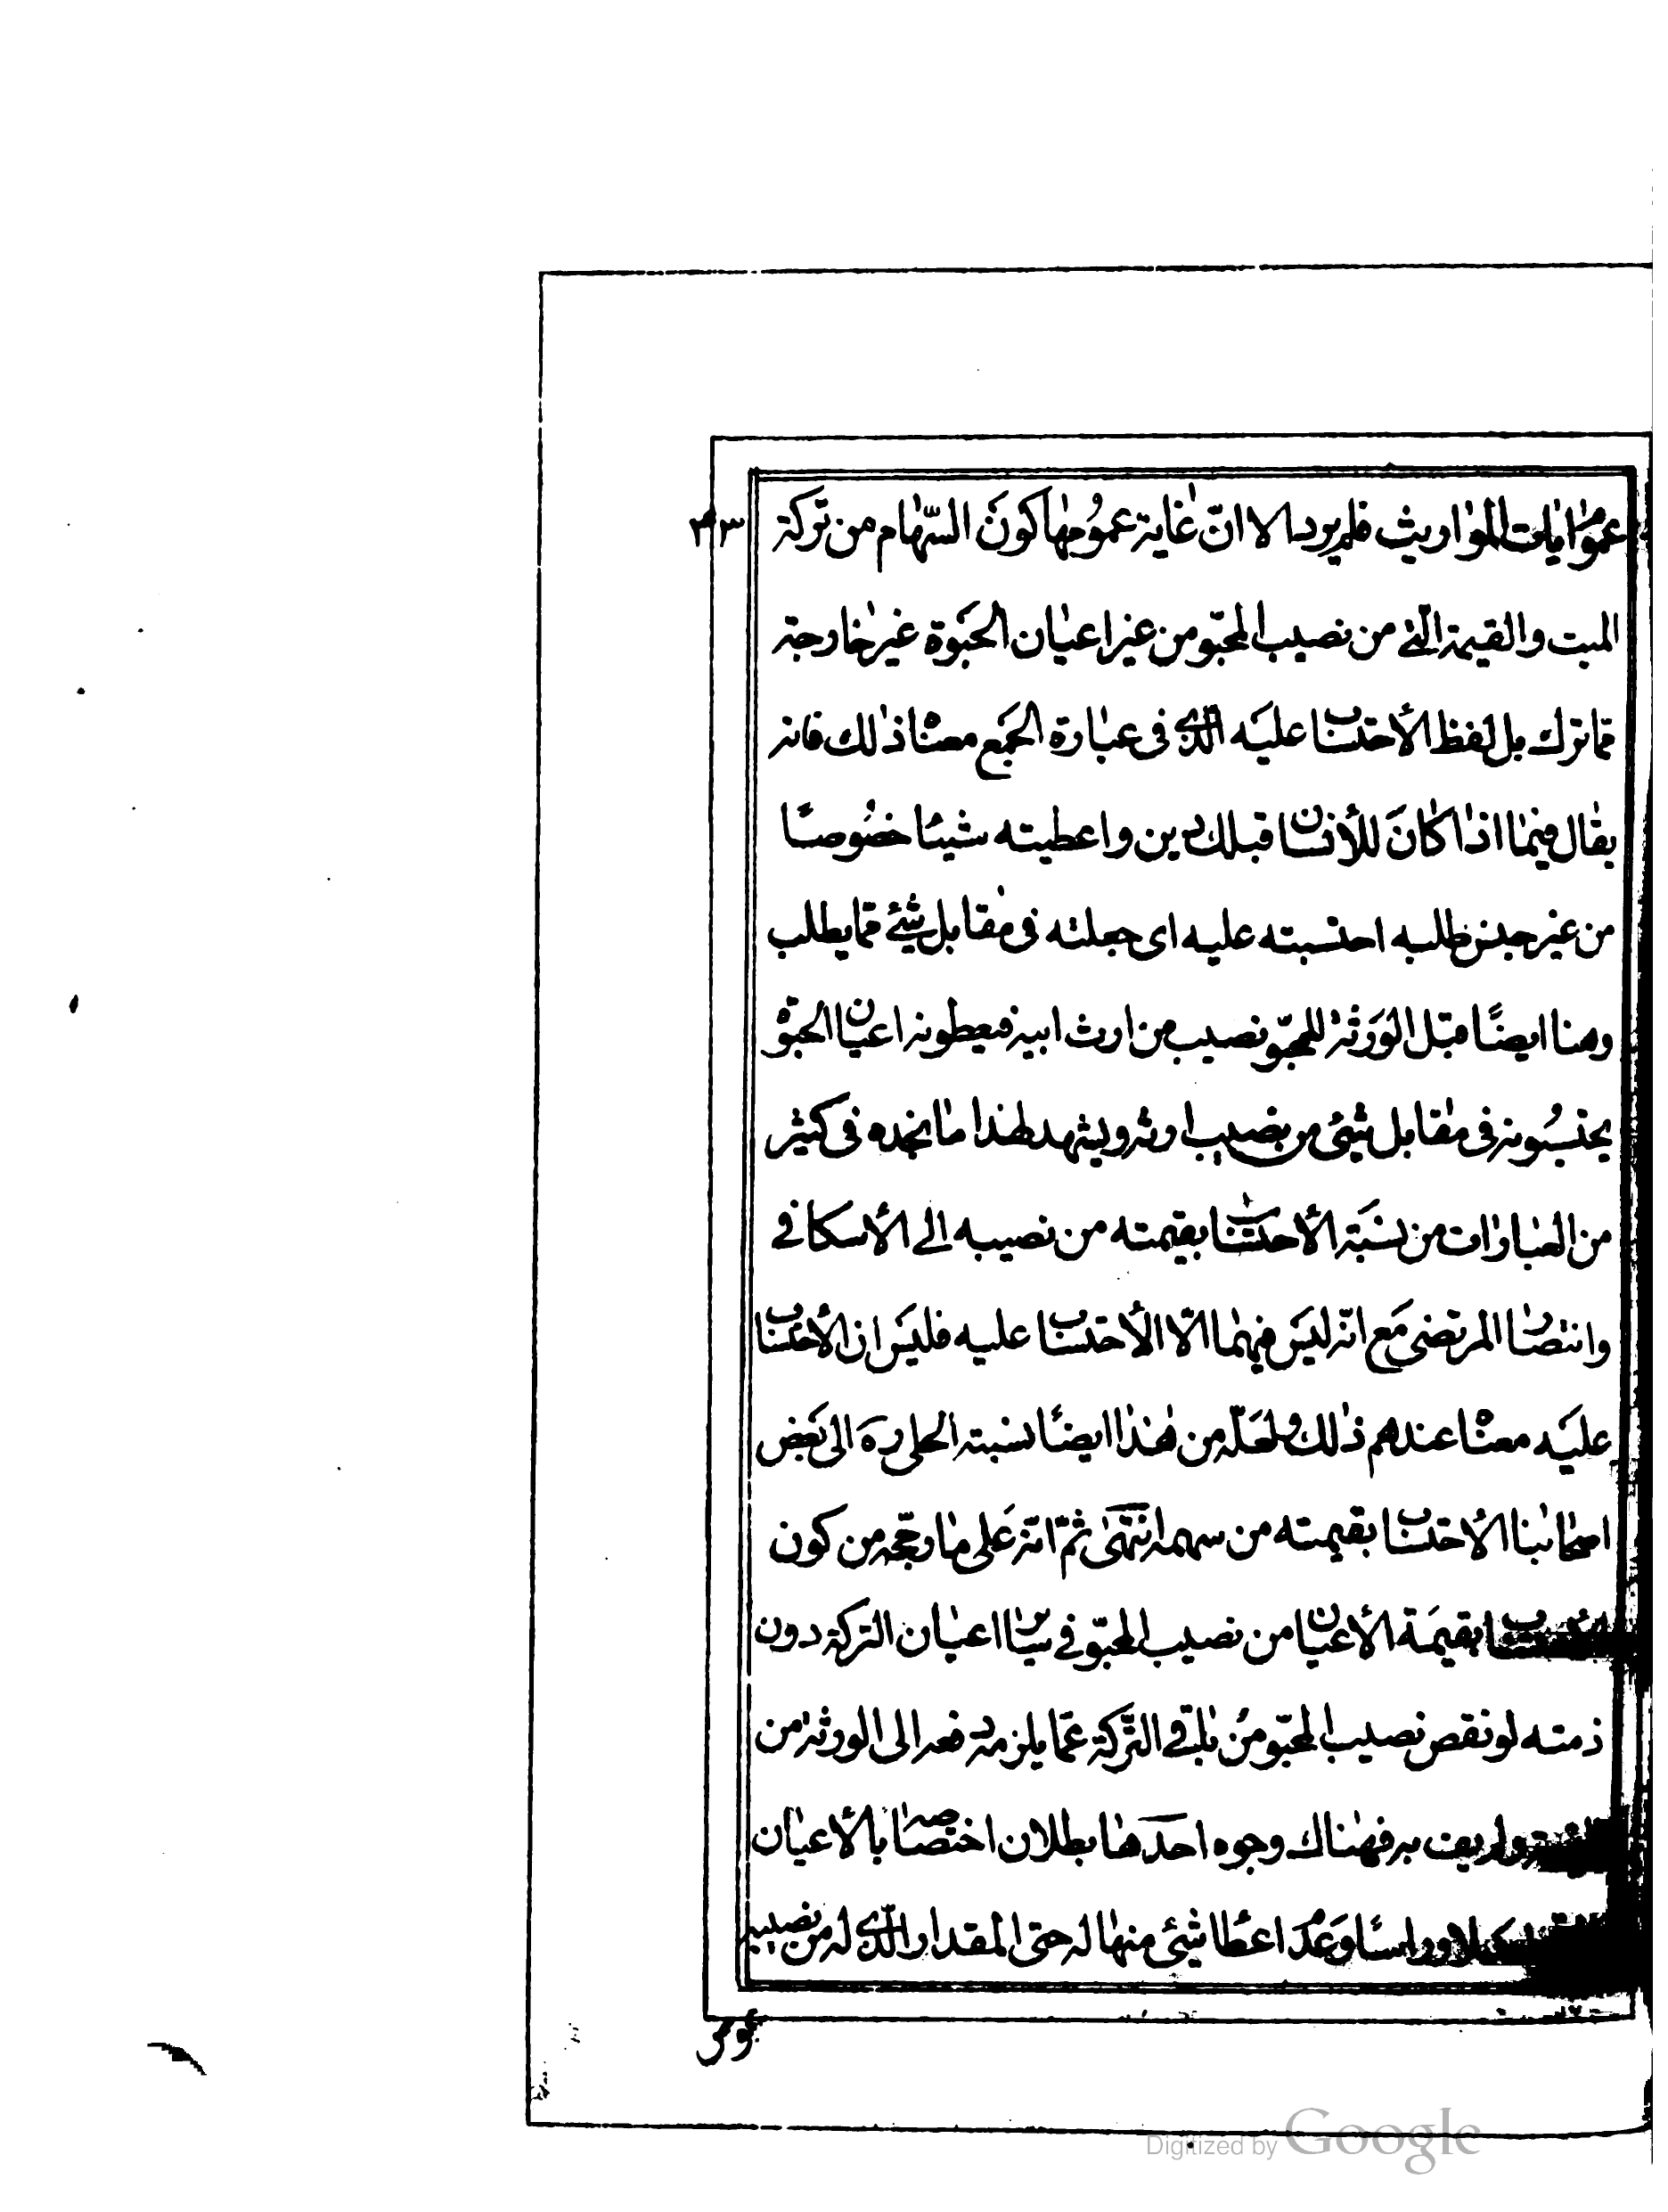 عموم ايات المواريث فلم يرد الا انّ غاية عمُومها كونَ السّهام من تركة
الميت والقيمة الّتى من نصيب المحبّو من غير اعيان الحَبْوة غير خارجة
ممّا ترك بل لفظ الأحتساب عليَه الّذى فى عبارة الجمَع معناه ذلك فانه
يقال فيما اذا كانَ للأنسان قبلك دين واعطيته شيئًا خصُوصًا
من غير جنس طلبه احتسبته عليه اى جعلته فى مقابل شيئ ممّا يطلب
وهنا ايضًا قبَل الوَرَثة للمحبّو نصيب من ارث ابيه فيعطونه اعيان الحَبْوة
يحتسبُونه فى مقابل شئ من نصيب ارثه ويشهد لهذا ما نجده فى كثير
من العبارات من نسَبة الأحتساب بقيمته من نصيبه الى الأسكافى
وانتصار المرتضى مَع انّه ليَس فيهما الّا الأحتساب عليه فليَس ان الأحتساب
عليَه معناه عندهم ذلك ولعَلّه من هذا ايضًا نسبة الحلى ره الى بَعض
اصحابنا الأحتساب بقيمته من سهمه انتهى ثمّ انّه عَلى ما رجّحه من كون
بقيمَة الأعيان من نصيب المحبّو فى سائر اعيان التركة دون
ذمته لو نقص نصيب المحبّو من باقى التّركة عمّا يلزمه دفعه الى الورثة من
ولم يف به فهناك وجوه احدَها بطلان اختصاصه بالأعيان
راسًا وعَدم اعطاء شئ منها له حتى المقدار الّذى له من نصيبه